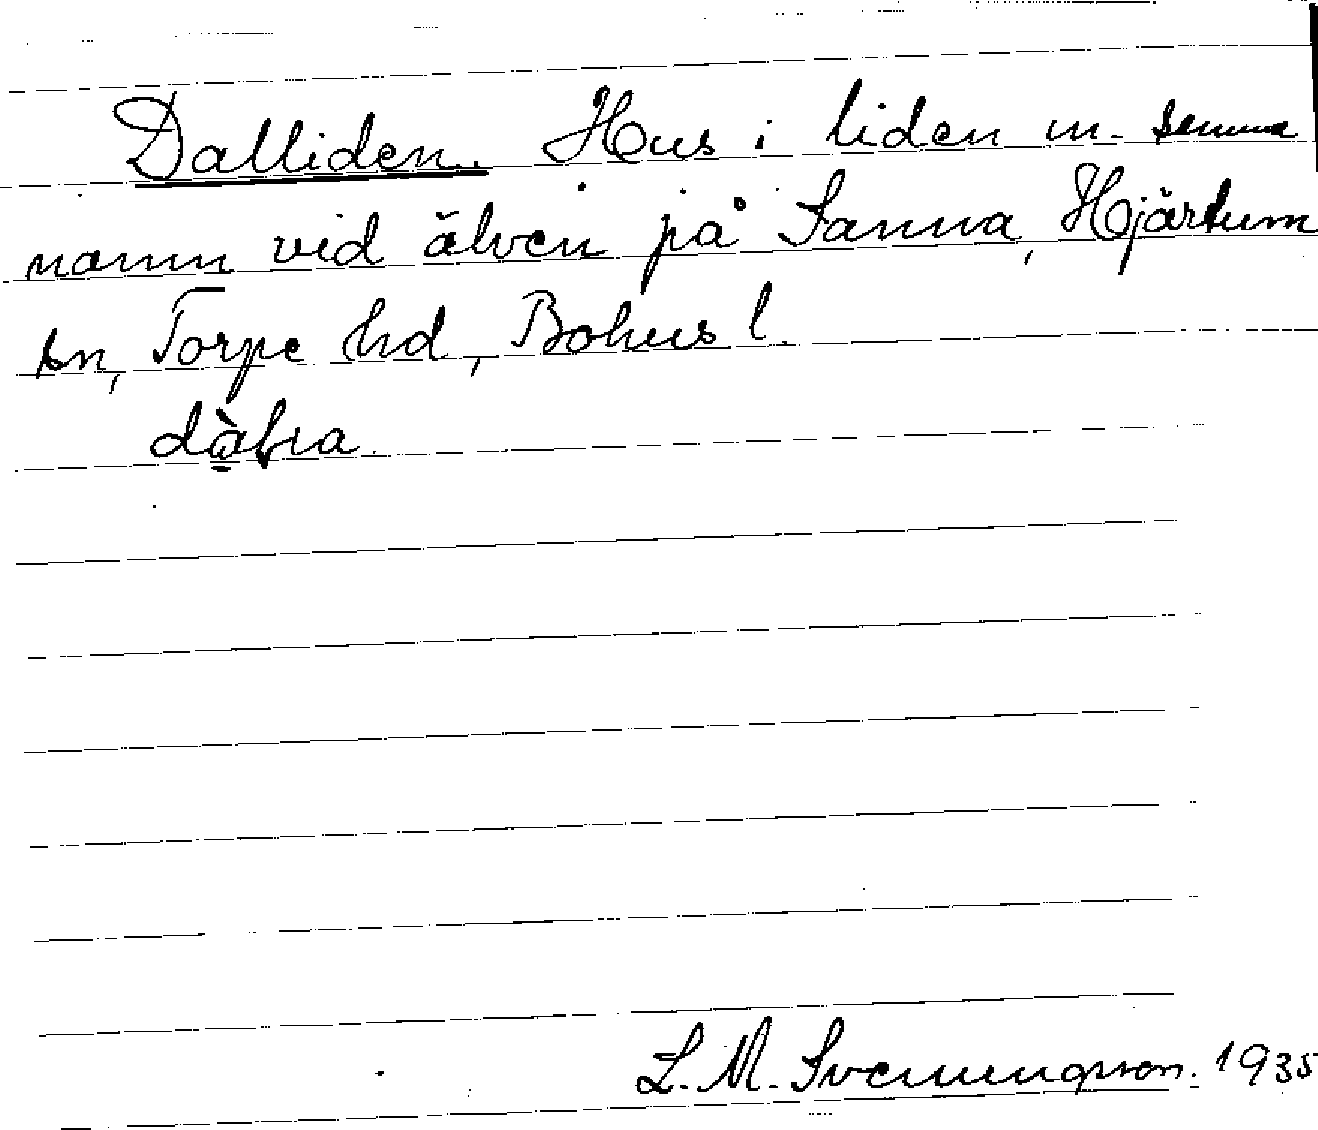 Dalliden. Hus i liden m. samma
namn vid älven på Sanna, Hjärtum
sn, Torpe hd, Bohus l.
L. M. Svenungsson. 1935